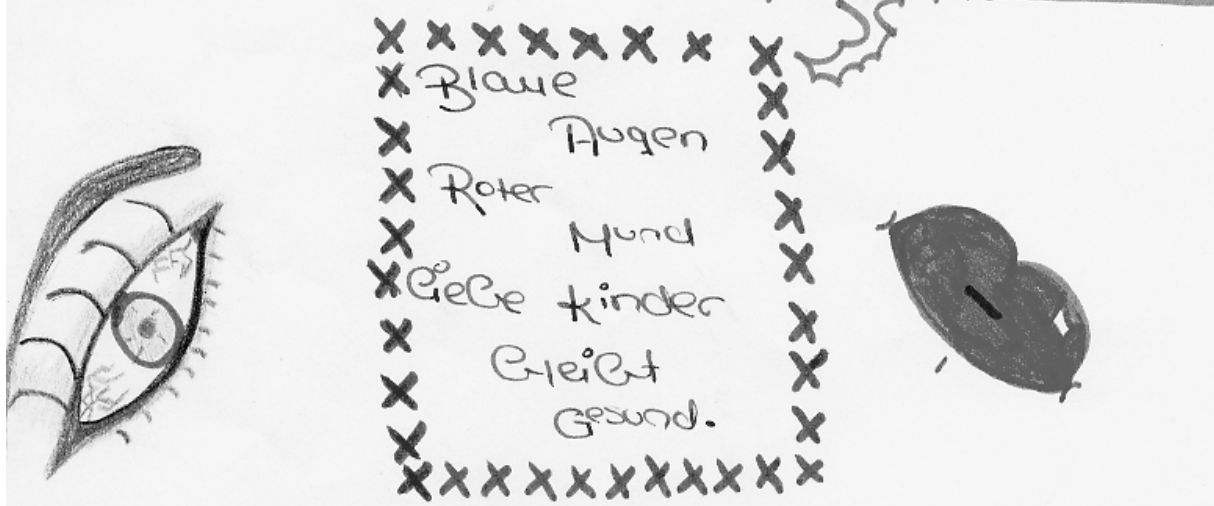 Blaue
Augen
Roter
Mund
liebe kinder
bleibt
Gesund.